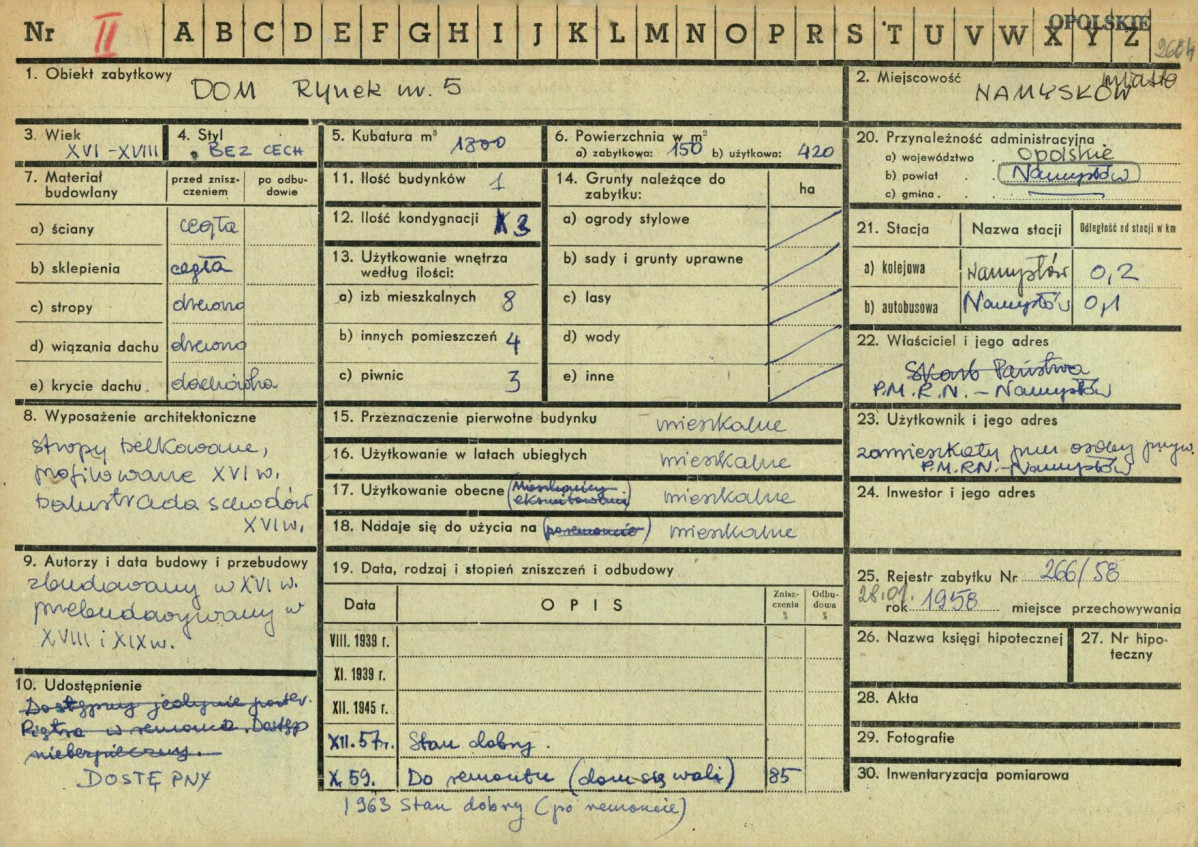 Nr II A B C D E F G H I J K L M N O P R S T U V W X Y Z
OPOLSKIE
2604
1. Obiekt zabytkowy
DOM Rynek nr. 5
2. Miejscowość
NAMYSŁÓW
miasto
3. Wiek
XVI – XVIII
4. Styl
BEZ CECH
5. Kubatura m³ 1800
6. Powierzchnia w m²
a) zabytkowa: 150 b) użytkowa: 420
7. Materiał budowlany
przed zniszczeniem
po odbudowie
a) ściany cegła
b) sklepienia cegła
c) stropy drewno
d) wiązania dachu drewno
e) krycie dachu dachówka
8. Wyposażenie architektoniczne
stropy belkowane,
profilowane XVI w.
balustrada schodów
XVI w.
9. Autorzy i data budowy i przebudowy
zbudowany w XVI w.
przebudowywany w
XVIII i XIX w.
10. Udostępnienie
Dostępny jedynie parter.
Piętra w remoncie. Dostęp
niebezpieczny.
DOSTĘPNY
11. Ilość budynków 1
12. Ilość kondygnacji 3
13. Użytkowanie wnętrza
według ilości:
a) izb mieszkalnych 8
b) innych pomieszczeń 4
c) piwnic 3
14. Grunty należące do
zabytku:
ha
a) ogrody stylowe
b) sady i grunty uprawne
c) lasy
d) wody
e) inne
15. Przeznaczenie pierwotne budynku mieszkalne
16. Użytkowanie w latach ubiegłych mieszkalne
17. Użytkowanie obecne (Mieszkańcy eksmitowani) mieszkalne
18. Nadaje się do użycia na (po remoncie) mieszkalne
19. Data, rodzaj i stopień zniszczeń i odbudowy
Data OPIS Zniszczenia % Odbudowa %
VIII. 1939 r.
XI. 1939 r.
XII. 1945 r.
XII. 57 r. Stan dobry.
X. 59. Do remontu (dom się wali) 85
1963 Stan dobry (po remoncie)
20. Przynależność administracyjna
a) województwo opolskie
b) powiat Namysłów
c) gmina
21. Stacja Nazwa stacji Odległość od stacji w km
a) kolejowa Namysłów 0,2
b) autobusowa Namysłów 0,1
22. Właściciel i jego adres
Skarb Państwa
P.M.R.N. – Namysłów
23. Użytkownik i jego adres
zamieszkały przez osoby pryw.
P.M.R.N. – Namysłów
24. Inwestor i jego adres
25. Rejestr zabytku Nr 266/58
28.01.
rok 1958 miejsce przechowywania
26. Nazwa księgi hipotecznej
27. Nr hipoteczny
28. Akta
29. Fotografie
30. Inwentaryzacja pomiarowa